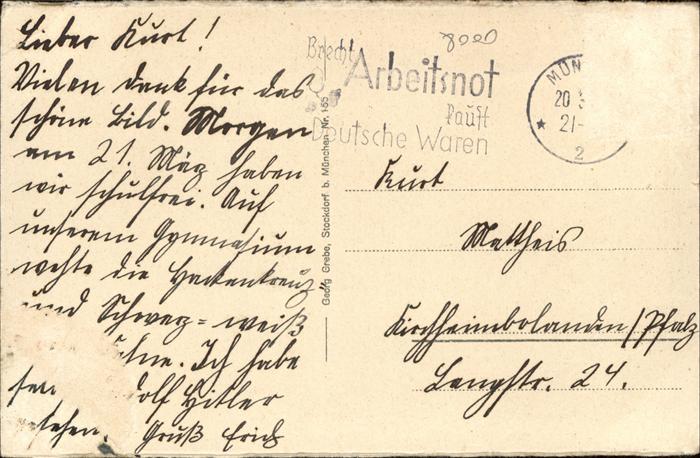 Lieber Kurt!
Vielen Dank für das
schöne Bild. Morgen
am 21. März haben
wir schulfrei. Auf
unserem Gymnasium
wehte die Hackenkreuz
und Schwarz-weiß
hne. Ich habe
olf Hitler
sehen. Gruß Erich
8000
Brecht
Arbeitsnot
kauft
Deutsche Waren
MÜN
20
* 21-
2
Georg Grebe, Stockdorf b. München Nr. 155
Kurt
Mattheis
Kirchheimbolanden/Pfalz
Langstr. 24.